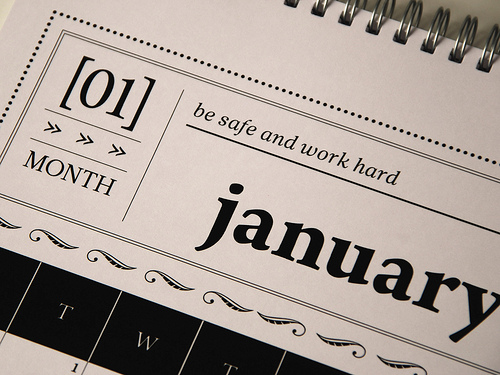 [01]
» » »
MONTH
be safe and work hard
january
T W T
1